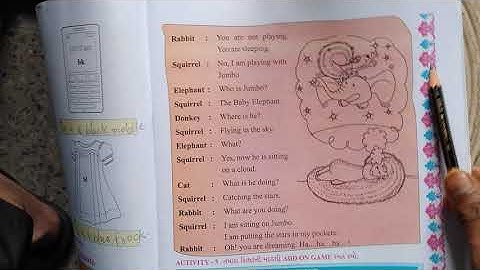 Rabbit : You are not playing.
You are sleeping.
Squirrel : No, I am playing with
Jumbo
Elephant : Who is Jumbo?
Squirrel : The Baby Elephant
Donkey : Where is he?
Squirrel : Flying in the sky.
Elephant : What?
Squirrel : Yes, now he is sitting
on a cloud.
Cat : What is he doing?
Squirrel : Catching the stars.
Rabbit : What are you doing?
Squirrel : I am sitting on Jumbo.
I am putting the stars in my pockets.
Rabbit : Oh! you are dreaming. Ha... ha... ha...!
ACTIVITY - 5 ADD ON GAME